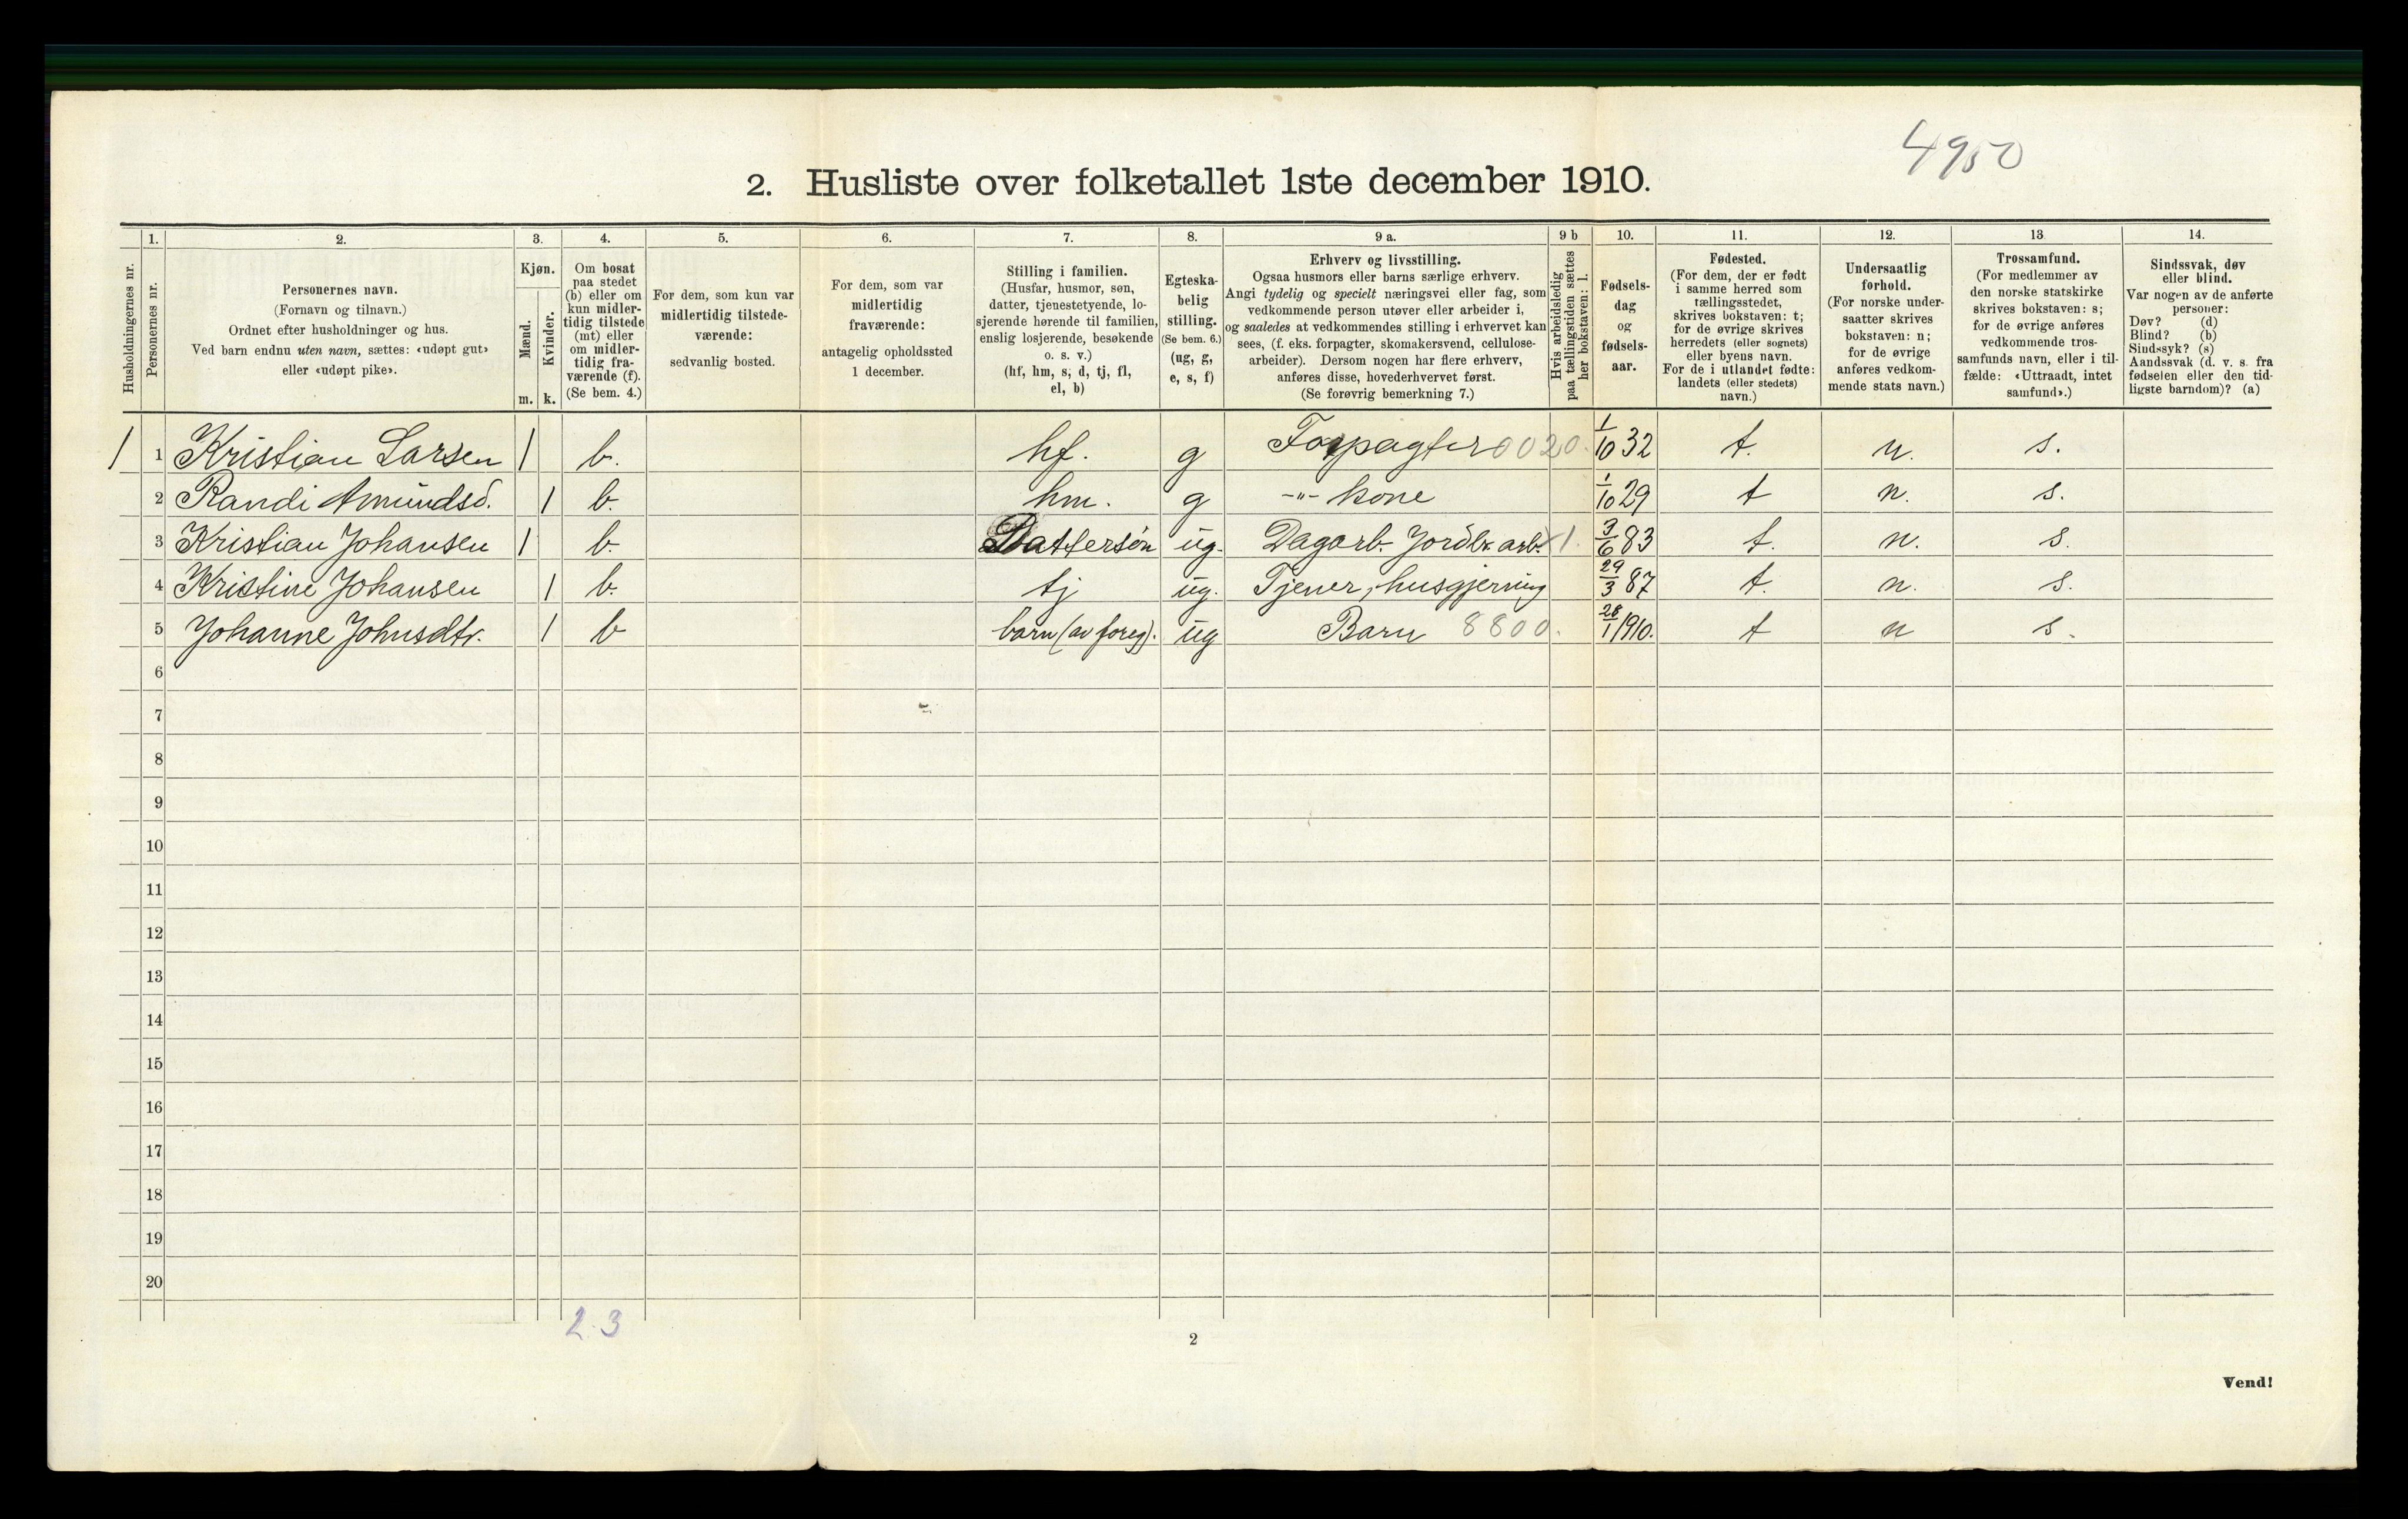 4950
2. Husliste over folketallet 1ste december 1910.
Husholdningernes nr.
1.
Personernes nr.
2.
Personernes navn.
(Fornavn og tilnavn.)
Ordnet efter husholdninger og hus.
Ved barn endnu uten navn, sættes: «udøpt gut»
eller «udøpt pike».
3.
Kjøn.
Mænd.
Kvinder.
m. k.
4.
Om bosat
paa stedet
(b) eller om
kun midler-
tidig tilstede
(mt) eller
om midler-
tidig fra-
værende (f).
(Se bem. 4.)
5.
For dem, som kun var
midlertidig tilstede-
værende:
sedvanlig bosted.
6.
For dem, som var
midlertidig
fraværende:
antagelig opholdssted
1 december.
7.
Stilling i familien.
(Husfar, husmor, søn,
datter, tjenestetyende, lo-
sjerende hørende til familien,
enslig losjerende, besøkende
o. s. v.)
(hf, hm, s, d, tj, fl,
el, b)
8.
Egteska-
belig
stilling.
(Se bem. 6.)
(ug, g,
e, s, f)
9 a.
Erhverv og livsstilling.
Ogsaa husmors eller barns særlige erhverv.
Angi tydelig og specielt næringsvei eller fag, som
vedkommende person utøver eller arbeider i,
og saaledes at vedkommendes stilling i erhvervet kan
sees, (f. eks. forpagter, skomakersvend, cellulose-
arbeider). Dersom nogen har flere erhverv,
anføres disse, hovederhvervet først.
(Se forøvrig bemerkning 7.)
9 b
Hvis arbeidsledig
paa tællingstiden sættes
her bokstaven: l.
10.
Fødsels-
dag
og
fødsels-
aar.
11.
Fødested.
(For dem, der er født
i samme herred som
tællingsstedet,
skrives bokstaven: t;
for de øvrige skrives
herredets (eller sognets)
eller byens navn.
For de i utlandet fødte:
landets (eller stedets)
navn.)
12.
Undersaatlig
forhold.
(For norske under-
saatter skrives
bokstaven: n;
for de øvrige
anføres vedkom-
mende stats navn.)
13.
Trossamfund.
(For medlemmer av
den norske statskirke
skrives bokstaven: s;
for de øvrige anføres
vedkommende tros-
samfunds navn, eller i til-
fælde: «Uttraadt, intet
samfund».)
14.
Sindssvak, døv
eller blind.
Var nogen av de anførte
personer:
Døv? (d)
Blind? (b)
Sindssyk? (s)
Aandssvak (d. v. s. fra
fødselen eller den tid-
ligste barndom)? (a)
1 1 Kristian Larsen 1 b. hf. g Forpagter 0020. 1/10 32 t. n. s.
2 Randi Amundsd. 1 b. hm. g -"- kone 1/10 29 t n. s.
3 Kristian Johansen 1 b. Dattersøn ug. Dagarb. Jordbr. arb. 1. 3/6 83 t. n. s.
4 Kristine Johansen 1 b. tj ug. Tjener, husgjerning 29/3 87 t. n. s.
5 Johanne Johnsdtr. 1 b barn (av foreg). ug Barn 8800. 28/1 1910. t n s.
6
7
8
9
10
11
12
13
14
15
16
17
18
19
20
2.3
2
Vend!